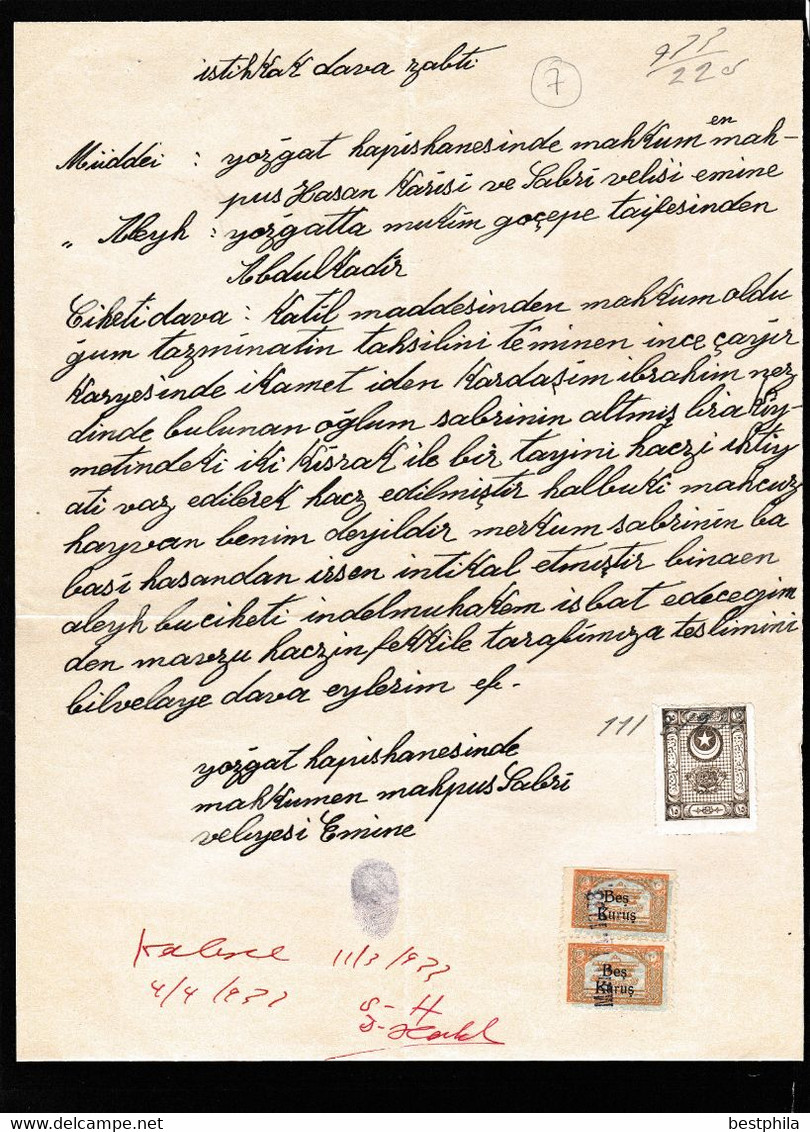 istihkak dava zabti
7
933
22
Müddei : yozgat hapishanesinde mahkumen mah-
pus Hasan Karisi ve Sabri velisi emine
" Aleyh : yozgatta mukim goçepe taifesinden
Abdulkadir
Ciheti dava : Katil maddesinden mahkum oldu
ğum tazminatin tahsilini te'minen ince çayir
Karyesinde ikamet iden Kardaşim ibrahim nez
dinde bulunan oğlum sabrinin altmiş lira kiy-
metindeki iki Kisrak ile bir tayini haczi ihtiy
ati vaz edilerek hacz edilmiştir halbuki mahcuz
hayvan benim deyildir merkum sabrinin ba
basi hasandan irsen intikal etmiştir binaen
aleyh bu ciheti indelmuhakem isbat edecegim
den mavzu haczin fekkile tarafimiza teslimini
bilvelaye dava eylerim ef.
111
yozgat hapishanesinde
mahkumen mahpus Sabri
veliyesi Emine
Beş
Kuruş
Beş
Kuruş
11/3/933
4/4/933
bestphila